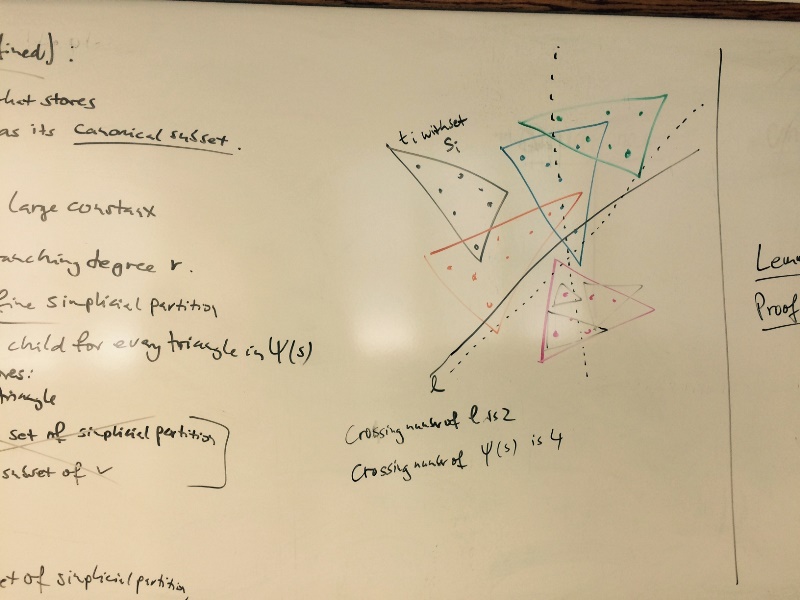 fined) :
that stores
as its canonical subset.
large constant
ranching degree r.
fine simplicial partition
child for every triangle in Ψ(s)
res:
triangle
set of simplicial partition
subset of v
et of simplicial partition
ti with set
Si
l
Crossing number of l is 2
Crossing numer of Ψ(s) is 4
Lemm
Proof